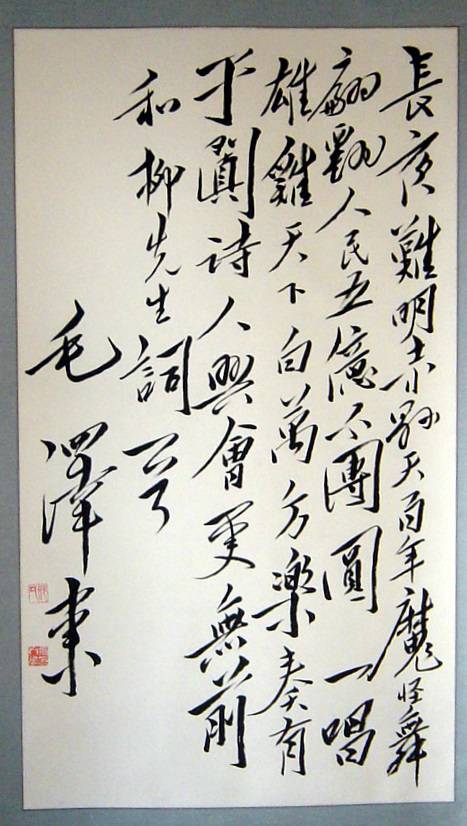 長夜難明赤縣天百年魔怪舞
翩躚人民五億不團圓一唱
雄雞天下白萬方樂奏有
于闐詩人興會更無前
和柳先生詞一
毛澤東